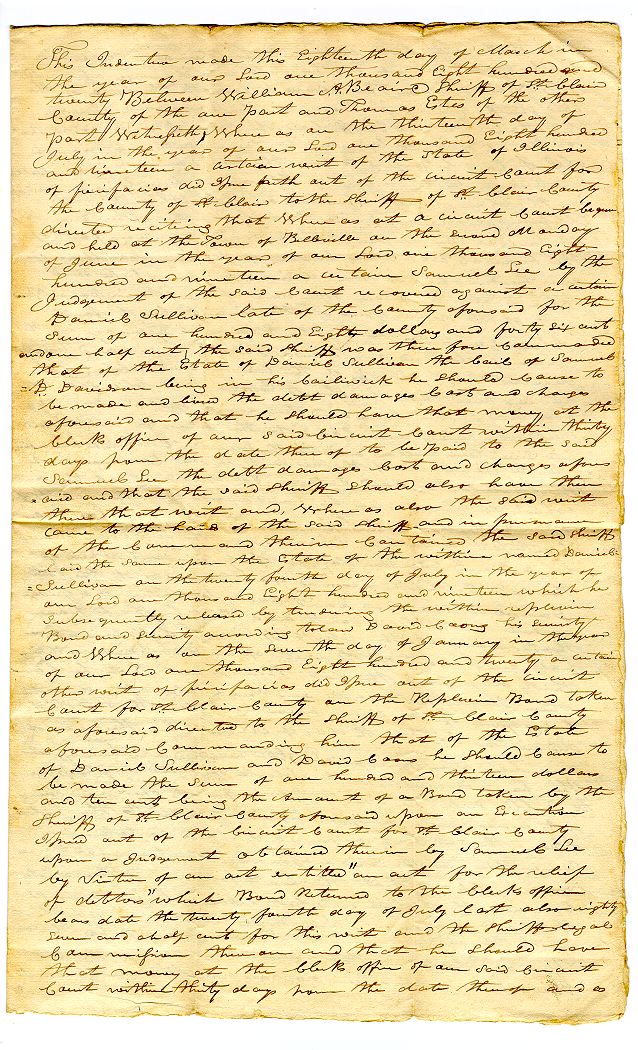 This Indenture made this Eighteenth day of March in
the year of our Lord one thousand Eight hundred and
twenty Between William A Beaird Sheriff of St Clair
County of the one Part and Thomas Estes of the other
Part Witnesseth, Where as on the thirteenth day of
July in the year of our Lord one thousand Eight hundred
and nineteen a certain writ of the State of Illinois
of fierifacias did Issue forth out of the circuit Court for
the County of St Clair to the Sheriff of St Clair County
directed reciting that Where as at a circuit Court began
and held at the Town of Bellville on the second Monday
of June in the year of our Lord one thousand Eight
hundred and nineteen a certain Samuel Lee by the
Judgement of the said Court recovered against a certain
Daniel Sullivan late of the County aforesaid for the
Sum of one hundred and Eight dollars and forty six cents
and one half cent, the said Sheriff was there fore Commanded
that of the Estate of Daniel Sullivan the bail of Samuel
D. Davidson being in his bailiwick he should Cause to
be made and levied the debt damages Costs and charges
aforesaid and that he should have that money at the
Clerks office of our said Circuit Court within thirty
days from the date there of to be Paid to the said
Samuel Lee the debt damages Costs and charges afores
said and that the said Sheriff should also have then
there that writ and, Where as also the said writ
came to the hands of the said Sheriff and in pursuance
of the Command therein Contained the said Sheriff
laid the same upon the Estate of the within named Daniel
Sullivan on the twenty fourth day of July in the year of
our Lord one thousand Eight hundred and nineteen which he
Subsequently released by tendering the within replevin
Bond and Security according to law David his Security
and Where as on the Seventh day of January in the year
of our Lord one thousand Eight hundred and twenty a certain
other writ of fierifacias did Issue out of the circuit
Court for St Clair County on the Replevin Bond taken
as aforesaid directed to the Sheriff of St Clair County
aforesaid Commanding him that of the Estate
of Daniel Sullivan and David he should Cause to
be made the Sum of one hundred and thirteen dollars
and ten cents being the Amount of a Bond taken by the
Sheriff of St Clair County aforesaid upon an Execution
Issued out of the Circuit Court for St Clair County
upon a Judgement obtained therein by Samuel Lee
by Virtue of an act entitled "an act for the relief
of debtors" which Bond Returned to the Clerks office
bears date the twenty fourth day of July last also eighty
Seven and a half cents for this writ and the Sheriffs legal
Commission thereon and that he should have
that money at the Clerks office of our said Circuit
Court within thirty days from the date thereof and as